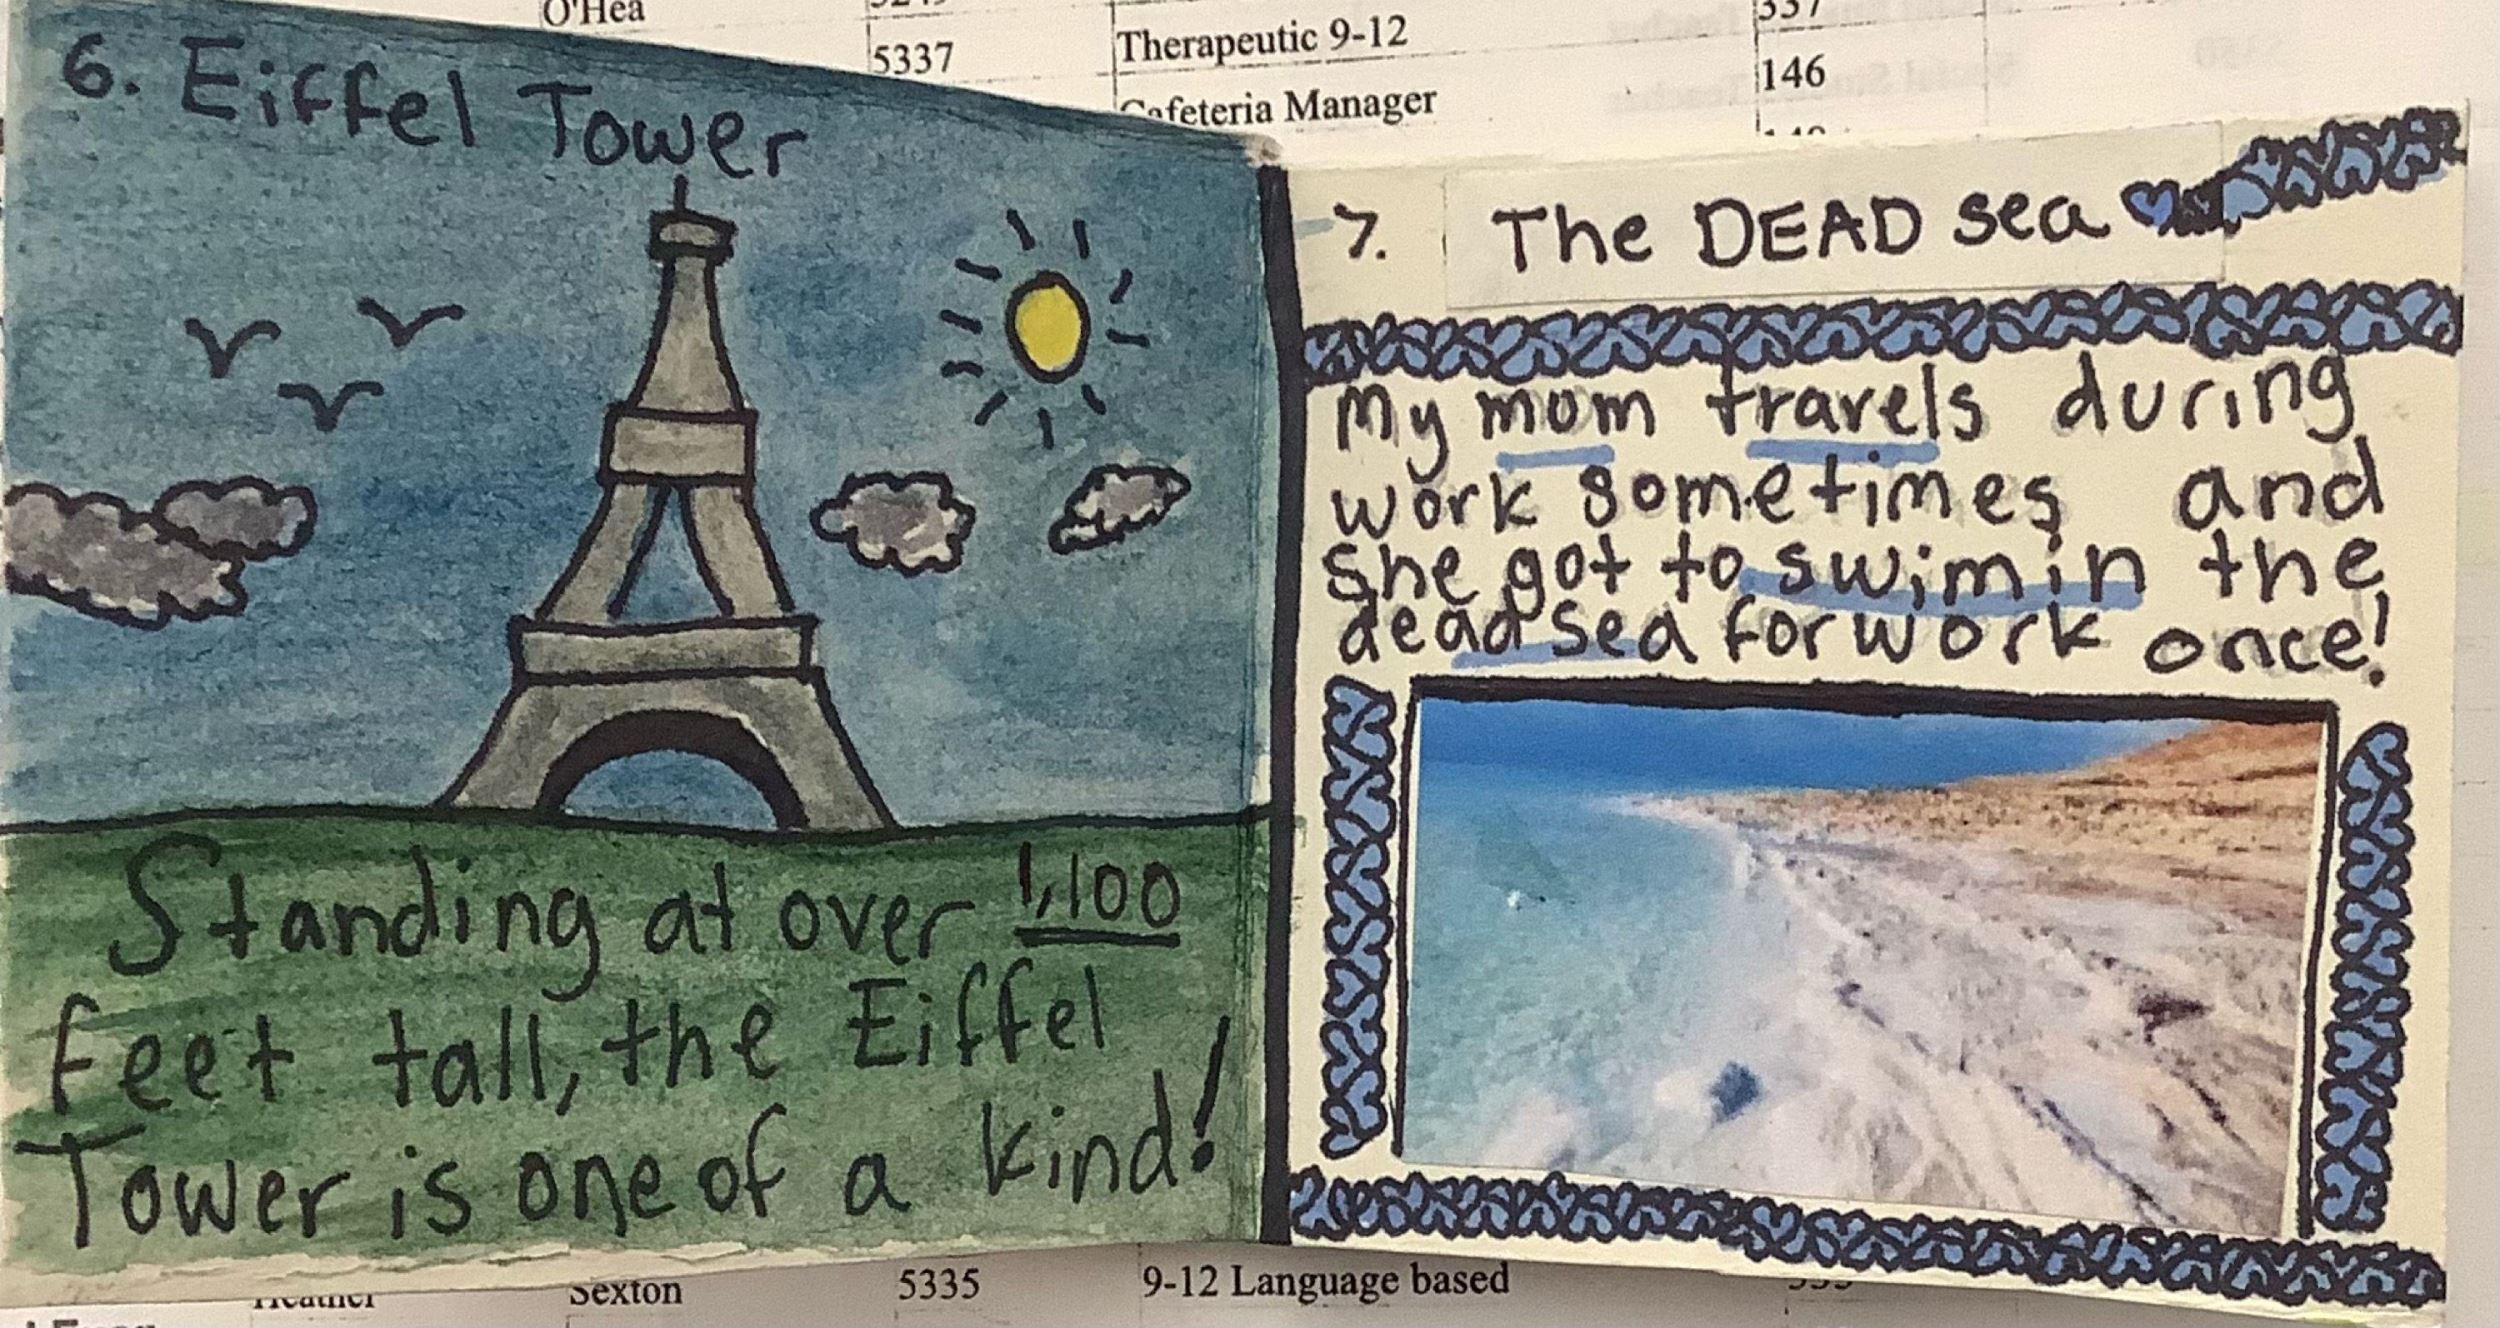 O'Hea
5337 Therapeutic 9-12 146
Cafeteria Manager
6. Eiffel Tower
Standing at over 1,100
feet tall, the Eiffel
Tower is one of a kind!
7. The DEAD sea
My mom travels during
work sometimes and
she got to swim in the
dead sea for work once!
Heather Sexton 5335 9-12 Language based